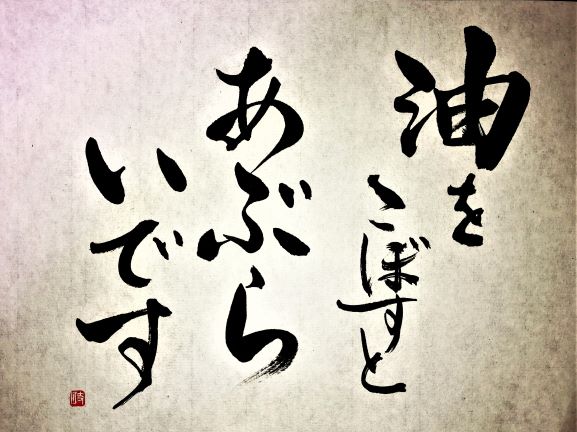 油を
こぼすと
あぶら
いです